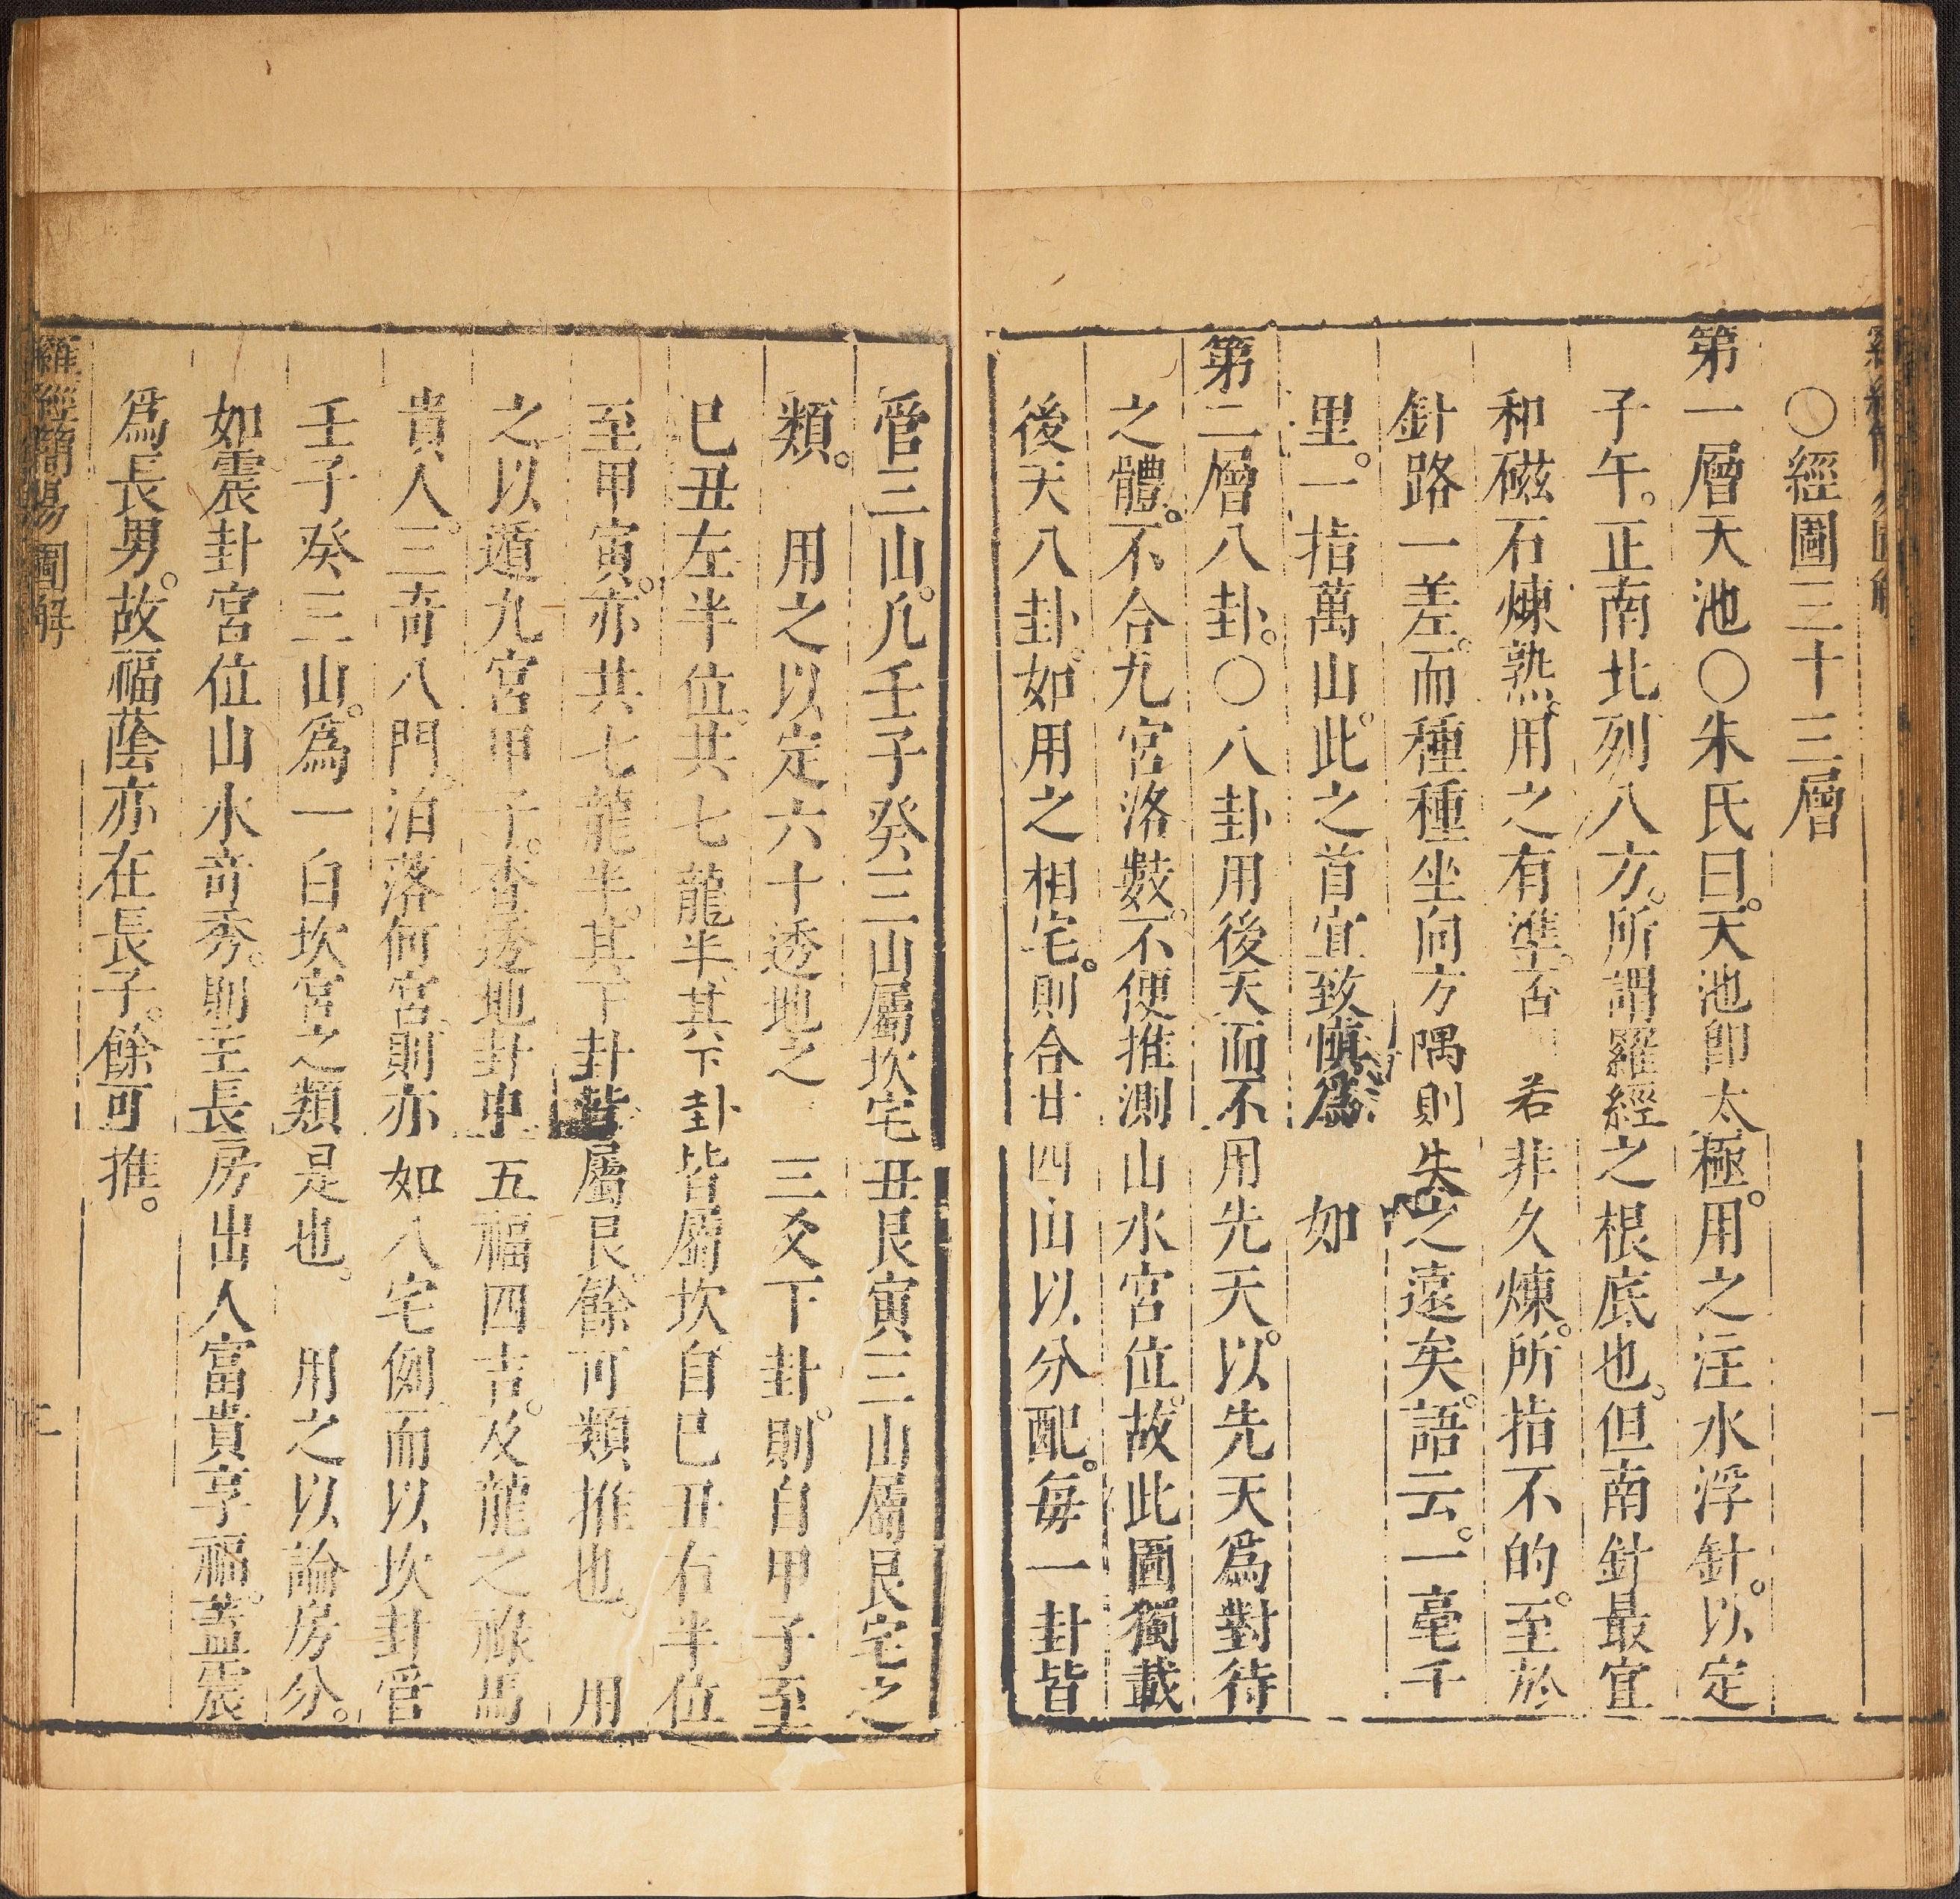 ○經圖三十三層
第一層天池○朱氏曰。天池卽太極。用之注水浮針。以定
子午。正南北列八方。所謂羅經之根底也。但南針最宜
和磁石煉熟。用之有準。否 若非久煉。所指不的。至於
針路一差。而種種坐向方隅則失之遠矣。語云。一毫千
里。一指萬山。此之首宜致慎爲 如
第二層八卦。○八卦用後天而不用先天。以先天爲對待
之體。不合九宮洛數。不便推測山水宮位。故此圖獨載
後天八卦。如用之相宅。則合廿四山以分配。每一卦皆
管三山。凡壬子癸三山屬坎宅丑艮寅三山屬艮宅之
類。 用之以定六十透地之 三爻下卦。則自甲子至
巳丑左半位。共七龍半。其下卦皆屬坎自巳丑右半位
至甲寅。亦共七龍半。其下卦皆屬艮。餘可類推也。 用
之以遁九宮甲子。查透地卦中五福四吉。及龍之祿馬
貴人。三奇八門。泊落何宮。則亦如八宅例而以坎卦管
壬子癸三山。爲一白坎宮之類是也。 用之以論房分。
如震卦宮位山水奇秀。則主長房出人富貴享福。蓋震
爲長男。故福蔭亦在長子。餘可推。
羅經簡易圖解
二